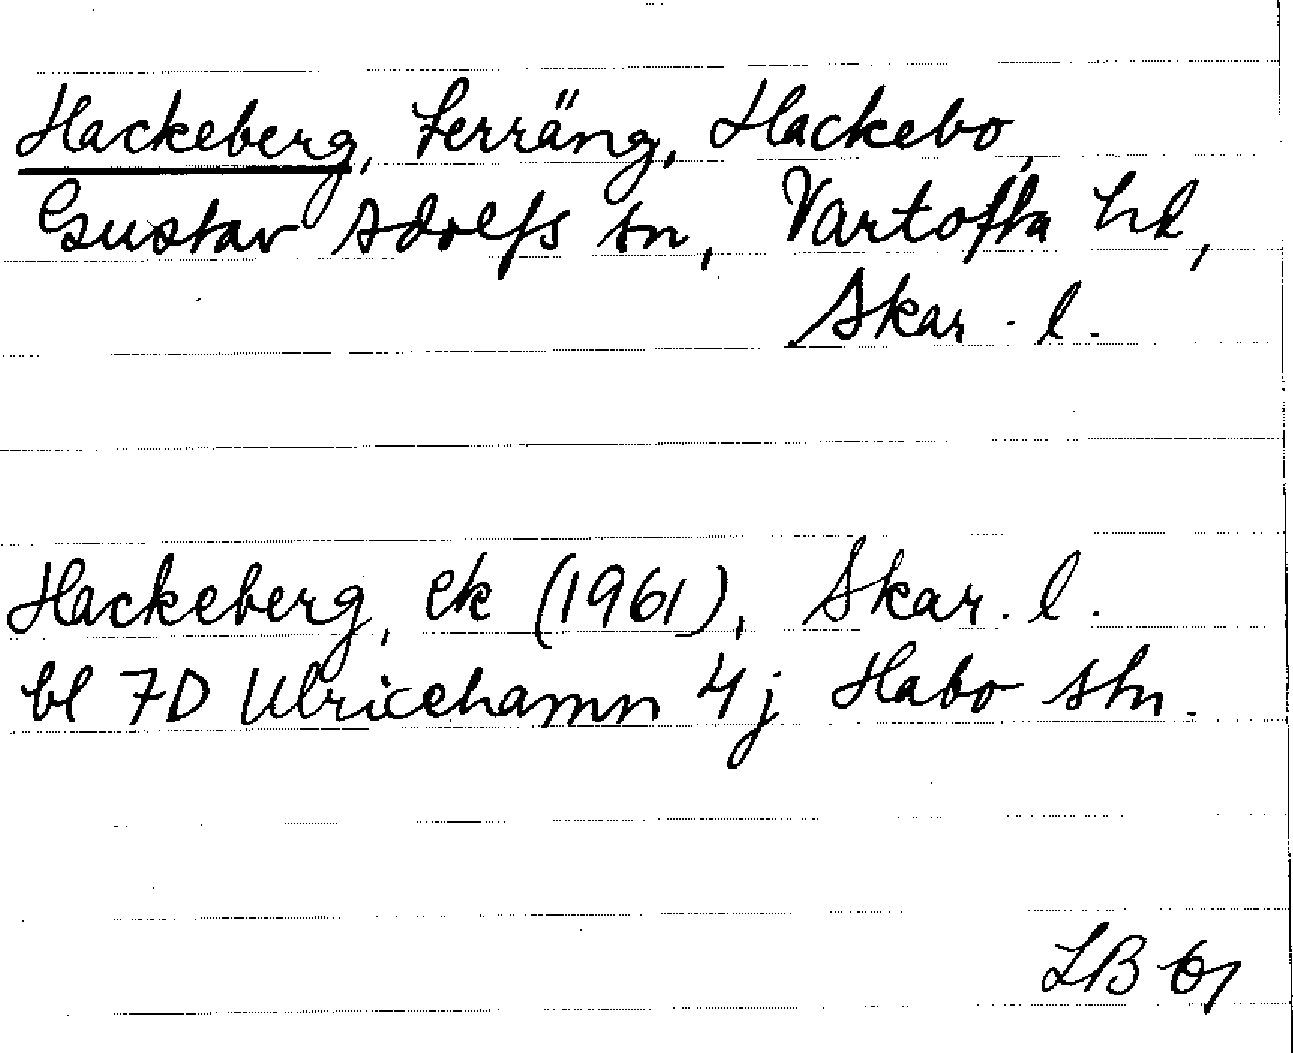 Hackeberg, terräng, Hackebo,
Gustav Adolfs sn, Vartofta hd,
Skar. l.
Hackeberg, ek (1961), Skar. l.
bl 7D Ulricehamn 4j Habo stn.
LB